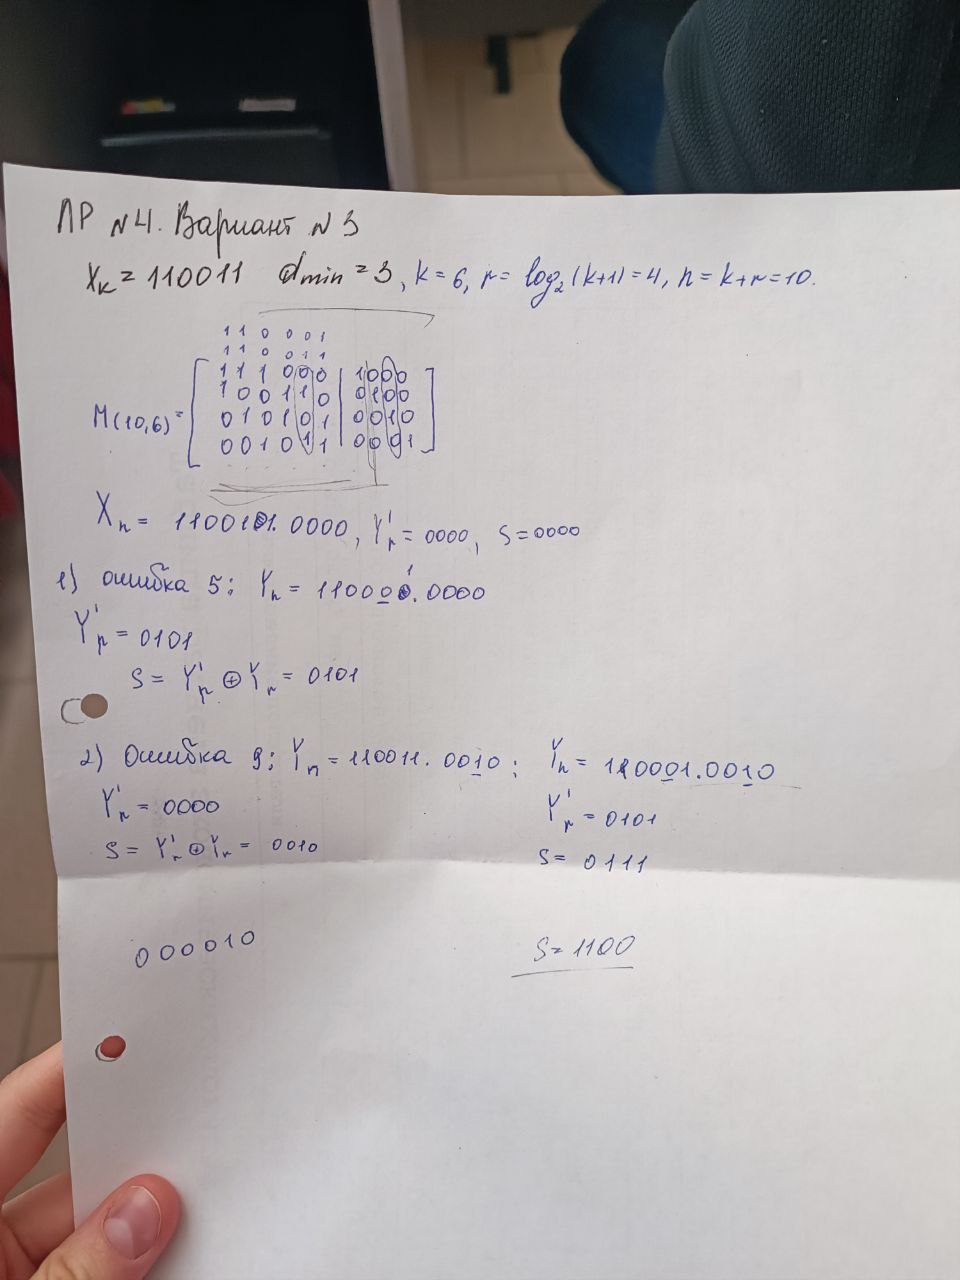 ЛР №4. Вариант №3
Xk = 110011 dmin = 3, k = 6, r = log2(k+1) = 4, n = k+r = 10.
1 1 0 0 0 1
1 1 0 0 1 1
1 1 1 0 0 0 | 1 0 0 0
1 0 0 1 1 0 | 0 1 0 0
M(10,6) =
0 1 0 1 0 1 | 0 0 1 0
0 0 1 0 1 1 | 0 0 0 1
Yr' = 0000, S = 0000
1) ошибка 5; Yn = 110001.0000
Yr' = 0101
S = Yr' ⊕ Yr = 0101
2) Ошибка 9; Yn = 110011.0010; Yn = 110001.0010
Yr' = 0000 Yr' = 0101
S = Yr' ⊕ Yr = 0010 S = 0111
000010 S = 1100